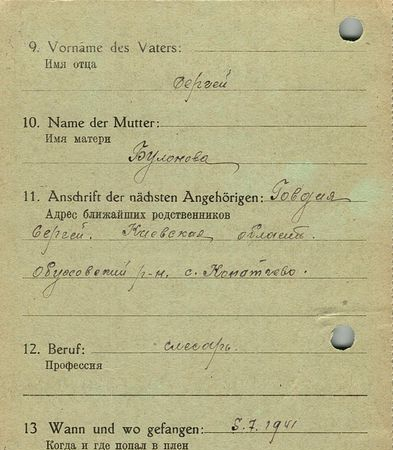 9. Vorname des Vaters:
Имя отца
Сергей
10. Name der Mutter:
Имя матери
Буланова
11. Anschrift der nächsten Angehörigen:
Адрес ближайших родственников
Сергей. Киевская область.
Обуховский р-н. с.
12. Beruf: слесарь.
Профессия
13 Wann und wo gefangen: 5.7.1941
Когда и где попал в плен